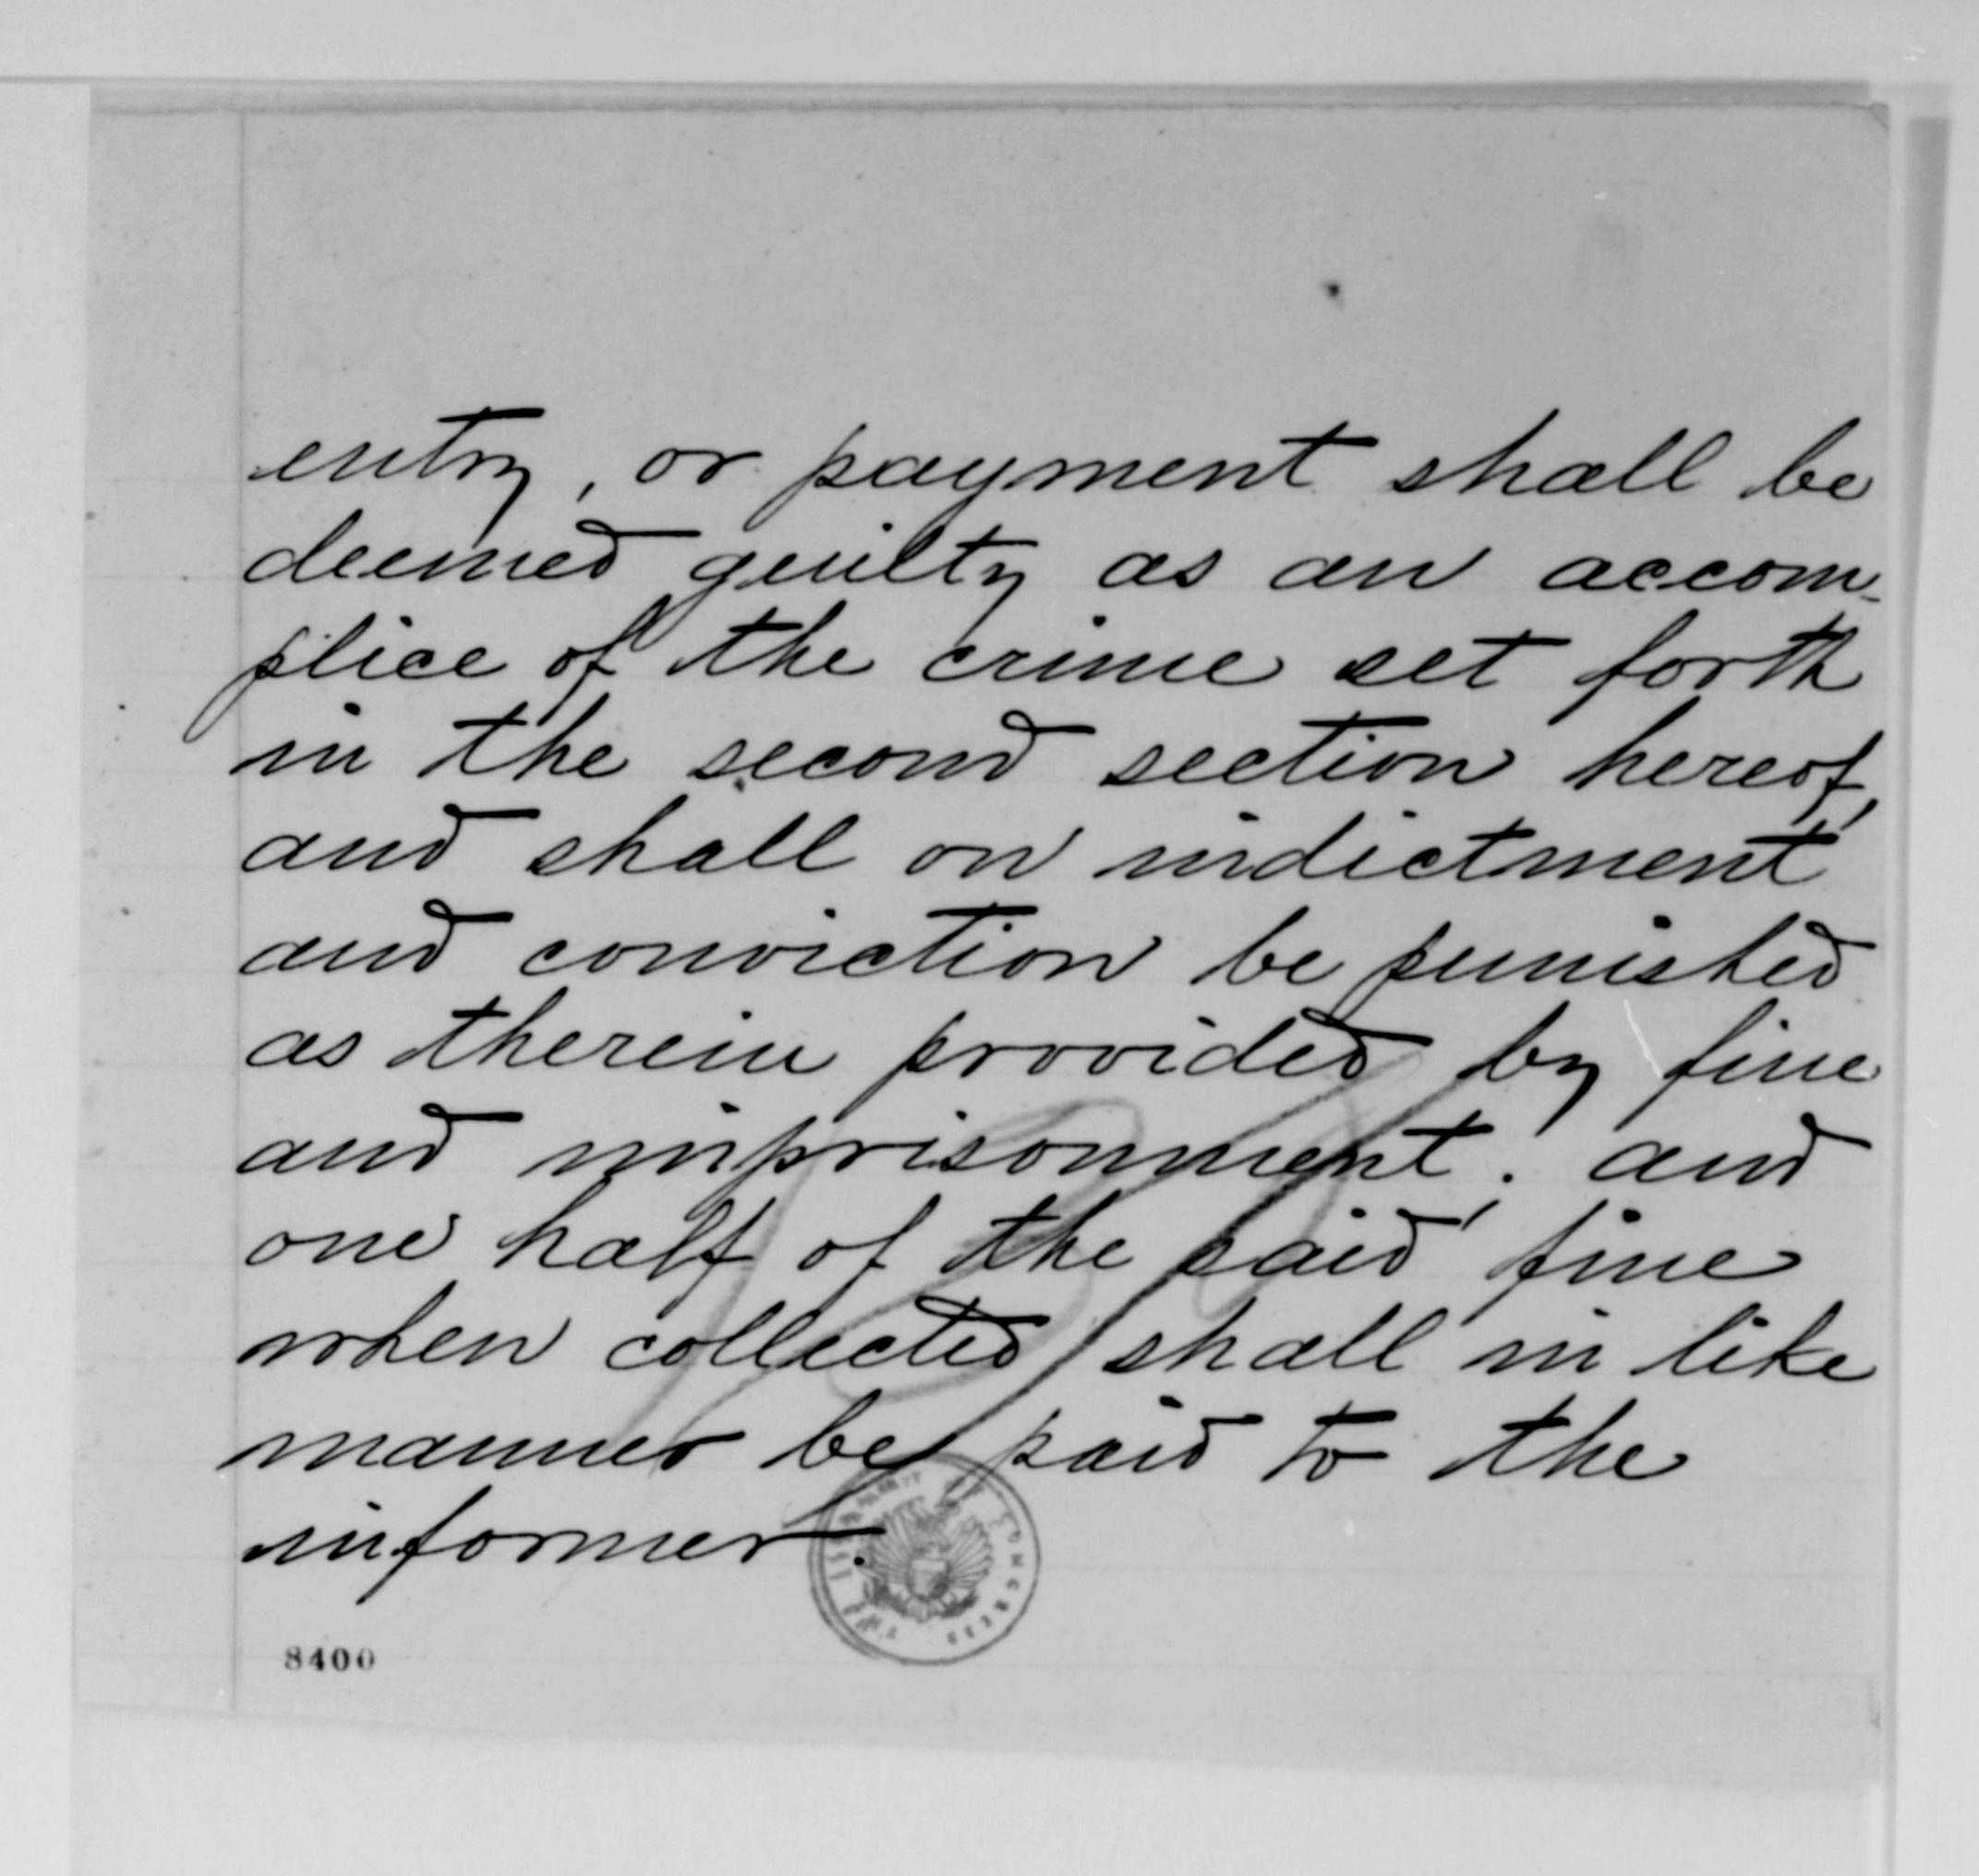 entry, or payment shall be
deemed guilty as an accom-
plice of the crime set forth
in the second section hereof,
and shall on indictment
and conviction be punished
as therein provided by fine
and imprisonment: and
one half of the said fine
when collected shall in like
manner be paid to the
informer.
THE LIBRARY OF CONGRESS
8400